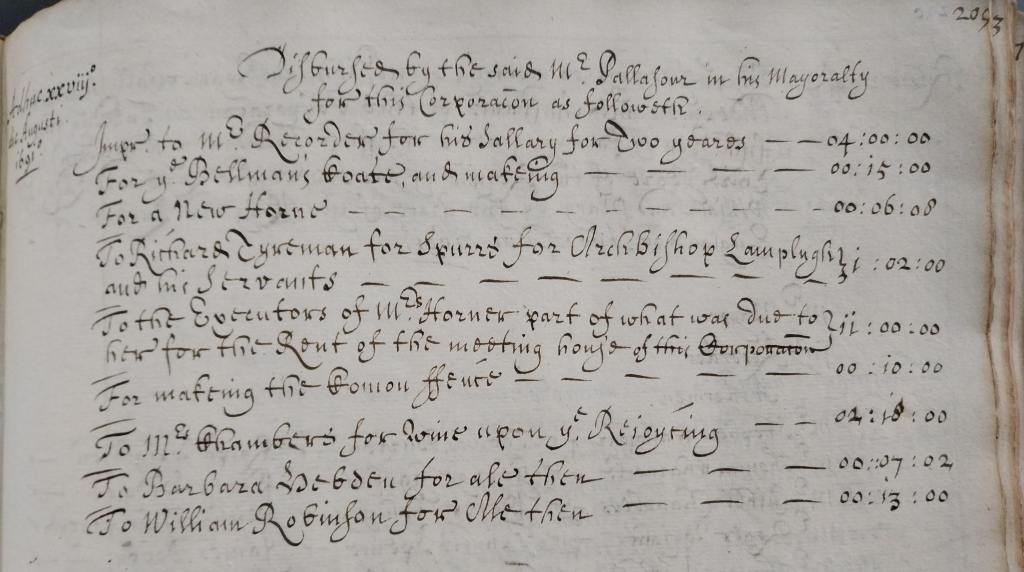 2053
Adhuc xxviij.o
die Augusti
1691.o
Disbursed by the said Mr. Pallasour in his Mayoralty
for this Corporacon as followeth.
Impr. to Mr. Recorder for his Sallary for Two yeares — — 04:00:00
For ye. Bellmans koate, and makeing — — — — 00:15:00
For a New Horne — — — — — — — — 00:06:08
To Richard Tyreman for Spurrs for Archbishop Lamplugh} 1:02:00
and his Servants — — — — — —
To the Executors of Mrs Horner part of what was due to} 11:00:00
her for the Rent of the meeting house of this Corporacon
For makeing the komon ffence — — — — — 00:10:00
To Mr. Khambers for Wine upon ye. Rejoyceing — — 02:18:00
To Barbara Hebden for ale then — — — 00:07:02
To William Robinson for Ale then — — — 00:13:00